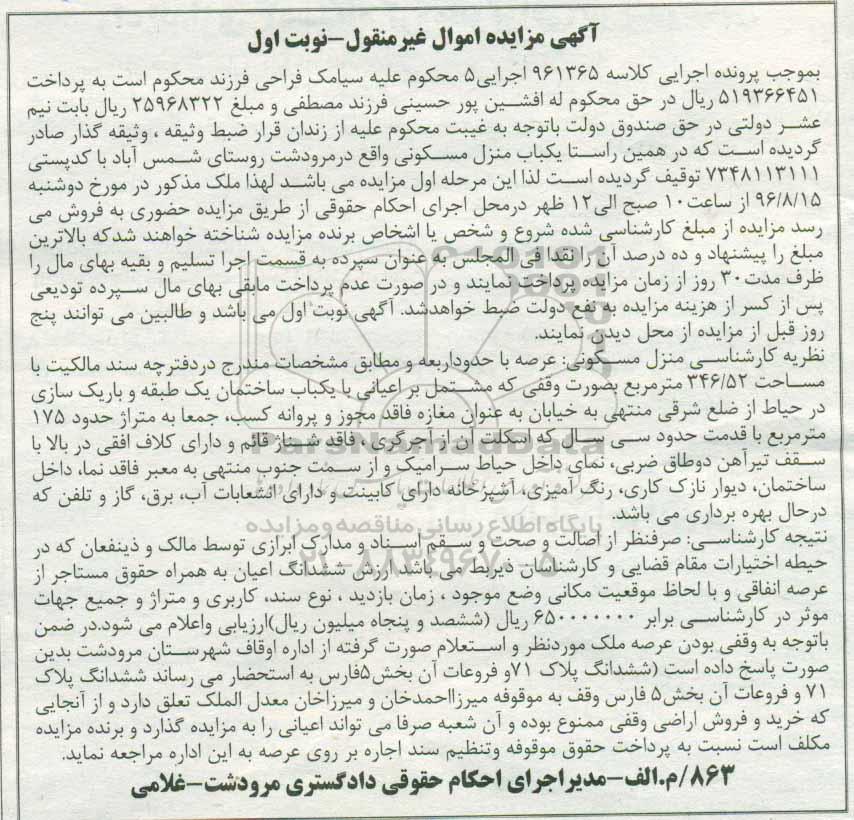 آگهی مزایده اموال غیرمنقول-نوبت اول
بموجب پرونده اجرایی کلاسه ۹۶۱۳۶۵ اجرایی۵ محکوم علیه سیامک فراحی فرزند محکوم است به پرداخت
۵۱۹۳۶۶۴۵۱ ریال در حق محکوم له افشین پور حسینی فرزند مصطفی و مبلغ ۲۵۹۶۸۳۲۲ ریال بابت نیم
عشر دولتی در حق صندوق دولت باتوجه به غیبت محکوم علیه از زندان قرار ضبط وثیقه ، وثیقه گذار صادر
گردیده است که در همین راستا یکباب منزل مسکونی واقع درمرودشت روستای شمس آباد با کدپستی
۷۳۴۸۱۱۳۱۱۱ توقیف گردیده است لذا این مرحله اول مزایده می باشد لهذا ملک مذکور در مورخ دوشنبه
۹۶/۸/۱۵ از ساعت۱۰ صبح الی۱۲ ظهر درمحل اجرای احکام حقوقی از طریق مزایده حضوری به فروش می
رسد مزایده از مبلغ کارشناسی شده شروع و شخص یا اشخاص برنده مزایده شناخته خواهند شدکه بالاترین
مبلغ را پیشنهاد و ده درصد آن را نقدا فی المجلس به عنوان سپرده به قسمت اجرا تسلیم و بقیه بهای مال را
ظرف مدت۳۰ روز از زمان مزایده پرداخت نمایند و در صورت عدم پرداخت مابقی بهای مال سپرده تودیعی
پس از کسر از هزینه مزایده به نفع دولت ضبط خواهدشد. آگهی نوبت اول می باشد و طالبین می توانند پنج
روز قبل از مزایده از محل دیدن نمایند.
نظریه کارشناسی منزل مسکونی: عرصه با حدوداربعه و مطابق مشخصات مندرج دردفترچه سند مالکیت با
مساحت ۳۴۶/۵۲ مترمربع بصورت وقفی که مشتمل بر اعیانی با یکباب ساختمان یک طبقه و باریک سازی
در حیاط از ضلع شرقی منتهی به خیابان به عنوان مغازه فاقد مجوز و پروانه کسب، جمعا به متراژ حدود ۱۷۵
مترمربع با قدمت حدود سی سال که اسکلت آن از آجرگری ، فاقد شناژ قائم و دارای کلاف افقی در بالا با
سقف تیرآهن دوطاق ضربی، نمای داخل حیاط سرامیک و از سمت جنوب منتهی به معبر فاقد نما، داخل
ساختمان، دیوار نازک کاری، رنگ آمیزی، آشپزخانه دارای کابینت و دارای انشعابات آب، برق، گاز و تلفن که
درحال بهره برداری می باشد.
نتیجه کارشناسی: صرفنظر از اصالت و صحت و سقم اسناد و مدارک ابرازی توسط مالک و ذینفعان که در
حیطه اختیارات مقام قضایی و کارشناسان ذیربط می باشد ارزش ششدانگ اعیان به همراه حقوق مستاجر از
عرصه انفاقی و با لحاظ موقعیت مکانی وضع موجود ، زمان بازدید ، نوع سند، کاربری و متراژ و جمیع جهات
موثر در کارشناسی برابر ۶۵۰۰۰۰۰۰۰ ریال (ششصد و پنجاه میلیون ریال)ارزیابی واعلام می شود.در ضمن
باتوجه به وقفی بودن عرصه ملک موردنظر و استعلام صورت گرفته از اداره اوقاف شهرستان مرودشت بدین
صورت پاسخ داده است (ششدانگ پلاک ۷۱و فروعات آن بخش۵فارس به استحضار می رساند ششدانگ پلاک
۷۱ و فروعات آن بخش۵ فارس وقف به موقوفه میرزااحمدخان و میرزاخان معدل الملک تعلق دارد و از آنجایی
که خرید و فروش اراضی وقفی ممنوع بوده و آن شعبه صرفا می تواند اعیانی را به مزایده گذارد و برنده مزایده
مکلف است نسبت به پرداخت حقوق موقوفه وتنظیم سند اجاره بر روی عرصه به این اداره مراجعه نماید.
۸۶۳/م.الف-مدیراجرای احکام حقوقی دادگستری مرودشت-غلامی
ParsNamadData
پایگاه اطلاع رسانی مناقصه و مزایده
۰۲۱-۸۸۳۴۹۶۷۰-۵